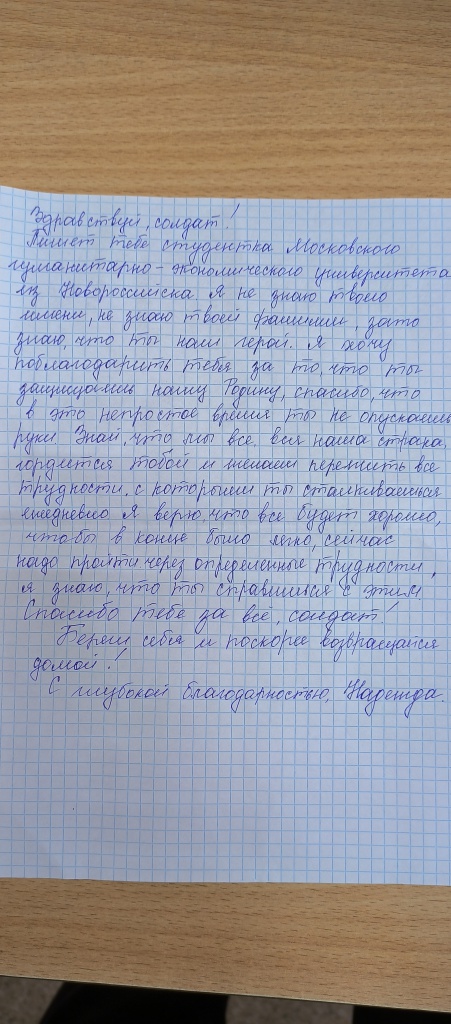 Здравствуй, солдат!
Пишет тебе студентка Московского
гуманитарно-экономического университета
из Новороссийска. Я не знаю твоего
имени, не знаю твоей фамилии, зато
знаю, что ты наш герой. Я хочу
поблагодарить тебя за то, что ты
защищаешь нашу Родину, спасибо, что
в это непростое время ты не опускаешь
руки. Знай, что мы все, вся наша страна,
гордится тобой и желаем пережить все
трудности, с которыми ты сталкиваешься
ежедневно. Я верю, что все будет хорошо,
чтобы в конце было легко, сейчас
надо пройти через определенные трудности,
я знаю, что ты справишься с этим.
Спасибо тебе за всё, солдат!
Береги себя и поскорее возвращайся
домой!
С глубокой благодарностью, Надежда.